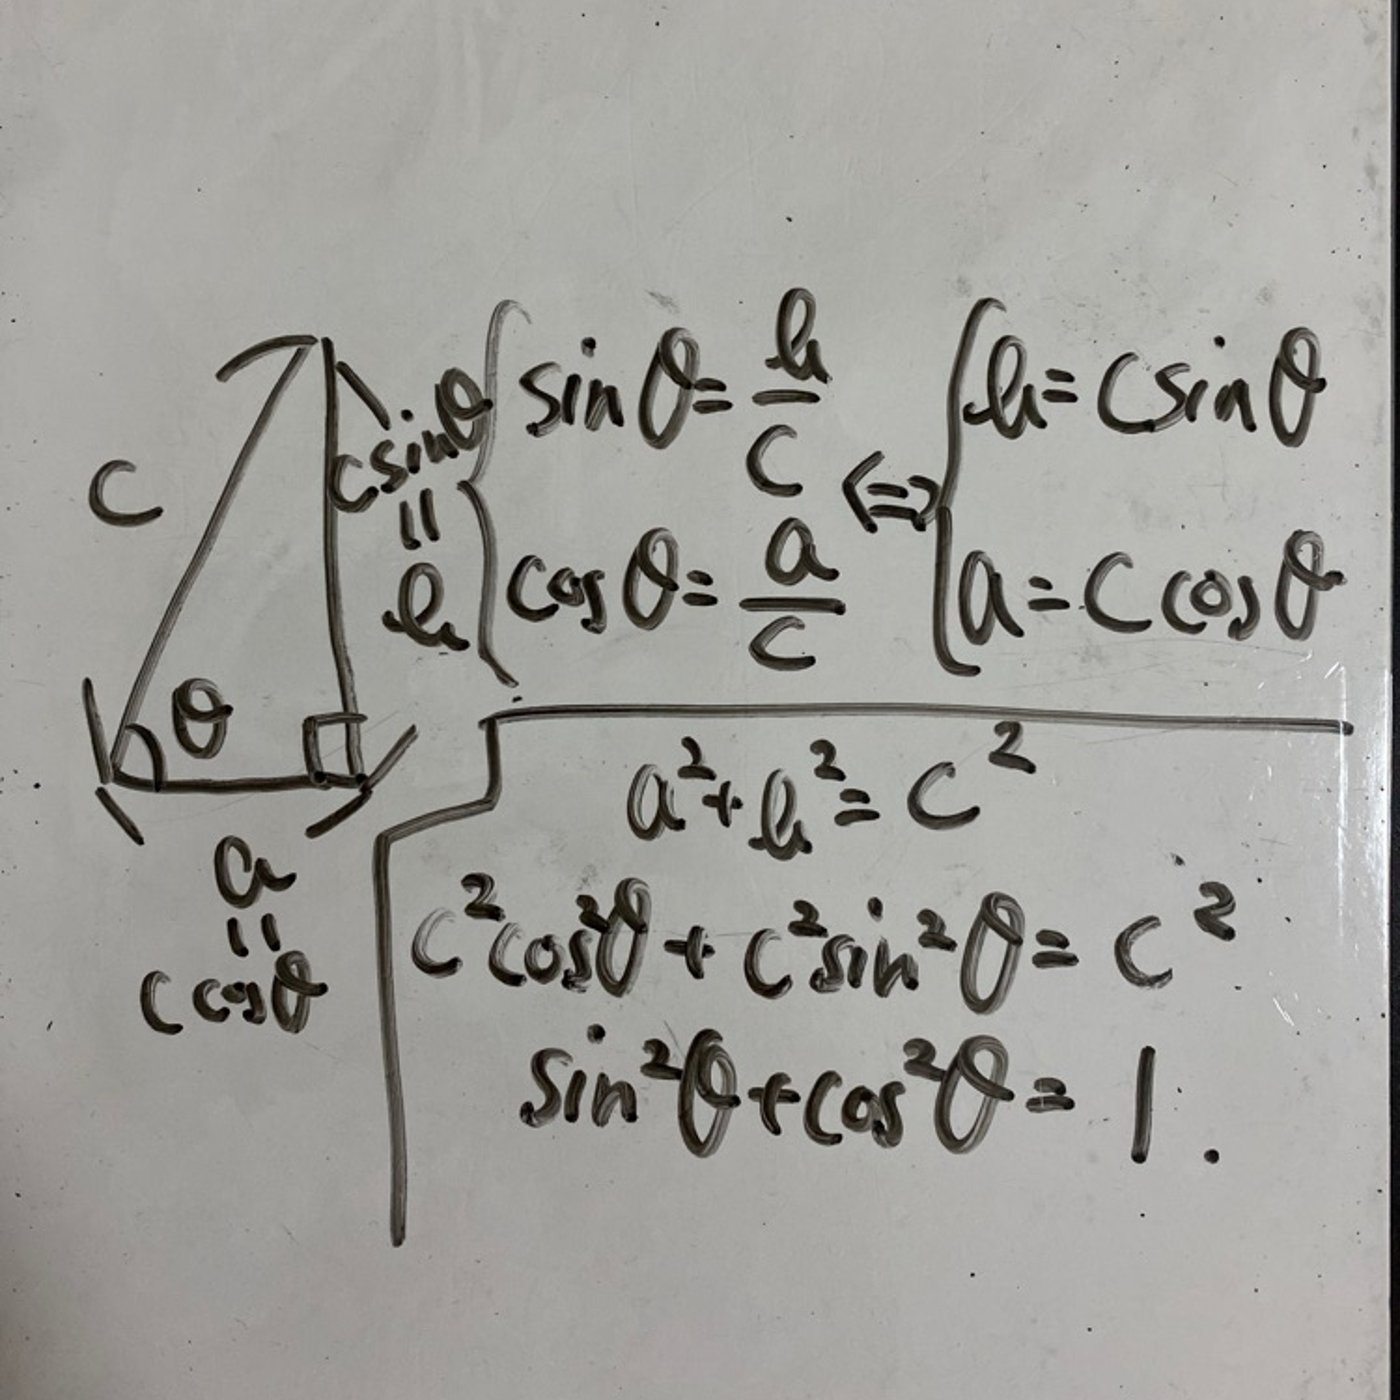 c
c sinθ
=
b
θ
a
=
c cosθ
{ sinθ = b/c
cosθ = a/c
⇔
{ b = c sinθ
a = c cosθ
a² + b² = c²
c²cos²θ + c²sin²θ = c²
sin²θ + cos²θ = 1.